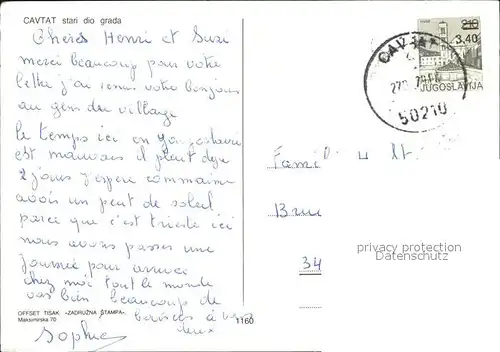 CAVTAT stari dio grada
Chères Henri et Suzi
merci beaucoup pour votre
lettre j'ai remis votre bonjous
au gens du village
le temps ici en Yougoslavie
est mauvais il pleut deja
2 jours j'espere commaime
avoir un peut de soleil
parce que c'est triste ici
nous avons passer une
journée pour arrivee
chez moi tout le monde
vas bien beaucoup de
baisers à vous
deux
Sophie
OFFSET TISAK »ZADRUŽNA ŠTAMPA«
Maksimirska 70
1160
210
3,40
JUGOSLAVIJA
CAVTAT
50210
Famili
Brun
34
privacy protection
Datenschutz